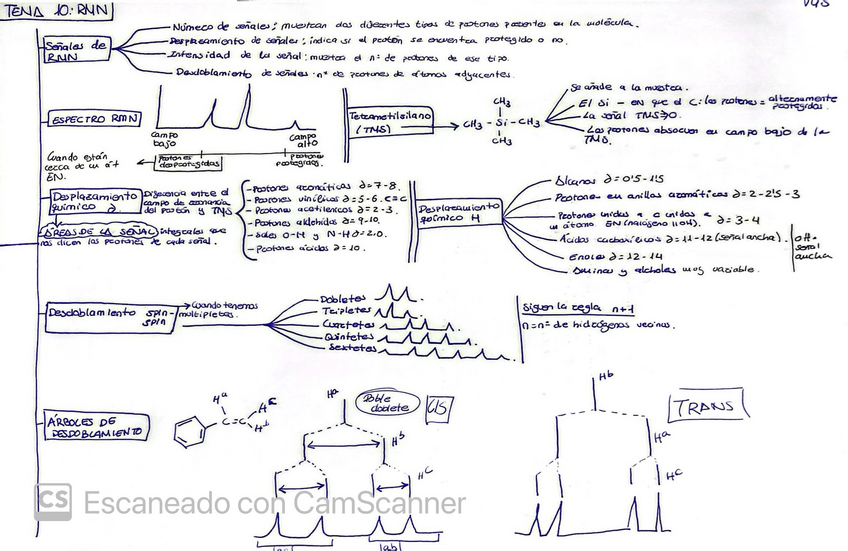 TEMA 10: RMN
Señales de RMN
Número de señales; muestran los diferentes tipos de protones presentes en la molécula.
Desplazamiento de señales; indica si el protón se encuentra protegido o no.
Intensidad de la señal: muestra el nº de protones de ese tipo.
Desdoblamiento de señales: nº de protones de átomos adyacentes.
ESPECTRO RMN
campo bajo
campo alto
Protones desprotegidos
protones protegidos.
Cuando están cerca de un át EN.
Tetrametilsilano (TMS)
CH3
CH3 - Si - CH3
CH3
Se añade a la muestra.
El Si - EN que el C: los protones = altamente protegidos.
La señal TMS
Los protones absorben en campo bajo de la TMS.
Desplazamiento químico ∂.
Diferencia entre el campo de resonancia del protón y TMS
- Protones aromáticos ∂=7-8.
- Protones vinílicos ∂=5-6. C=C
- Protones acetilénicos ∂=2-3.
- Protones aldehídos ∂=9-10.
- O-H y N-H
- Protones ácidos ∂=10.
ÁREAS DE LA SEÑAL integrales que nos dicen los protones de cada señal.
Desplazamiento químico H
Alcanos ∂=0'5-1'5
Protones en anillos aromáticos ∂=2-2'5-3
Protones unidos a C unidos a un átomo EN (halógeno, OH). ∂=3-4
Ácidos carboxílicos ∂=11-12 (señal ancha).
Enoles ∂=12-14
Aminas y alcoholes muy variable.
OH- señal ancha
Desdoblamiento spin-spin
Cuando tenemos multipletes.
Dobletes
Tripletes
Cuartetos
Quintetes
Sextetes
Siguen la regla n+1
n=nº de hidrógenos vecinos.
ÁRBOLES DE DESDOBLAMIENTO
Hª
C=C
Hᶜ
Hᵇ
Hª
Doble doblete
CIS
Hᵇ
Hᶜ
Hᵇ
TRANS
Hª
Hᶜ
|ac|
|ab|
CS Escaneado con CamScanner